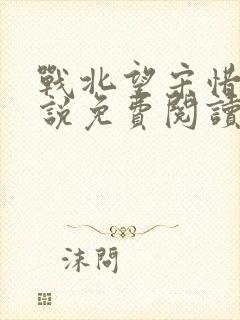 戰北望宋惜
說免費閱讀
沫問